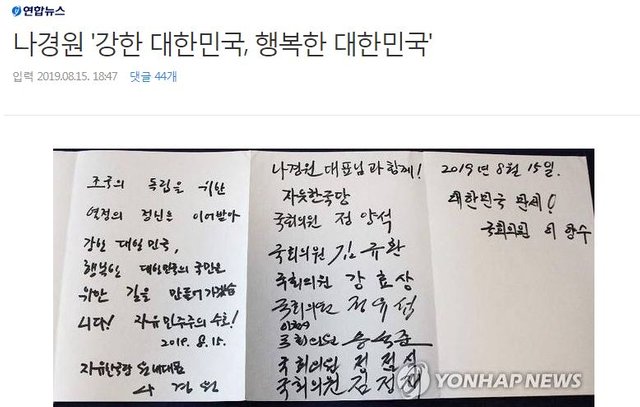 연합뉴스
나경원 '강한 대한민국, 행복한 대한민국'
입력 2019.08.15. 18:47 댓글 44개
조국의 독립을 위한
열정의 정신을 이어받아
강한 대한민국,
행복한 대한민국의 국민을
위한 길을 만들어가겠습
니다! 자유민주주의 수호!
2019. 8. 15.
자유한국당 원내대표
나경원
나경원 대표님과 함께!
자유한국당
국회의원 정양석
국회의원 김규환
국회의원 강효상
국회의원 정유섭
국회의원 송석준
국회의원 정점식
국회의원 김정재
2019년 8월 15일.
대한민국 만세!
국회의원 이양수
YONHAP NEWS